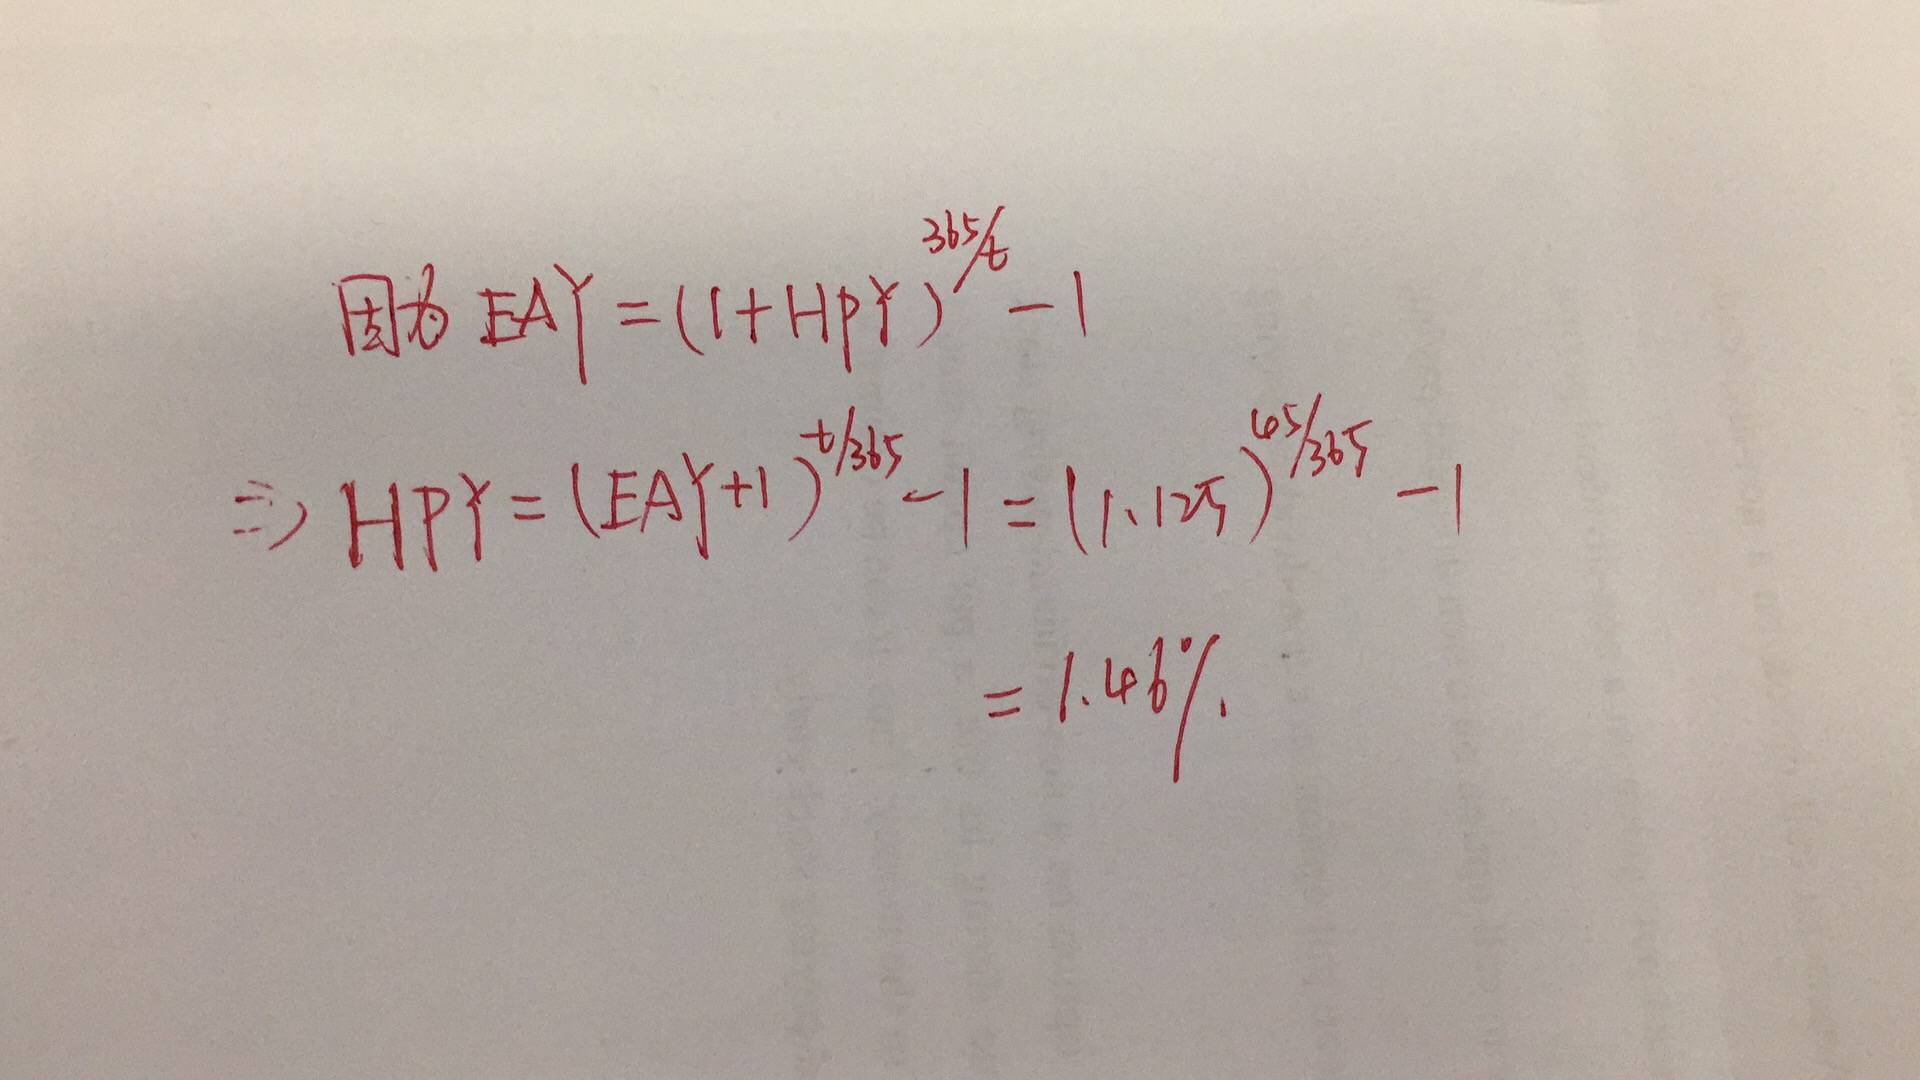 因为 EAY = (1+HPY)^365/t - 1
=> HPY = (EAY+1)^t/365 - 1 = (1.125)^45/365 - 1
= 1.46%